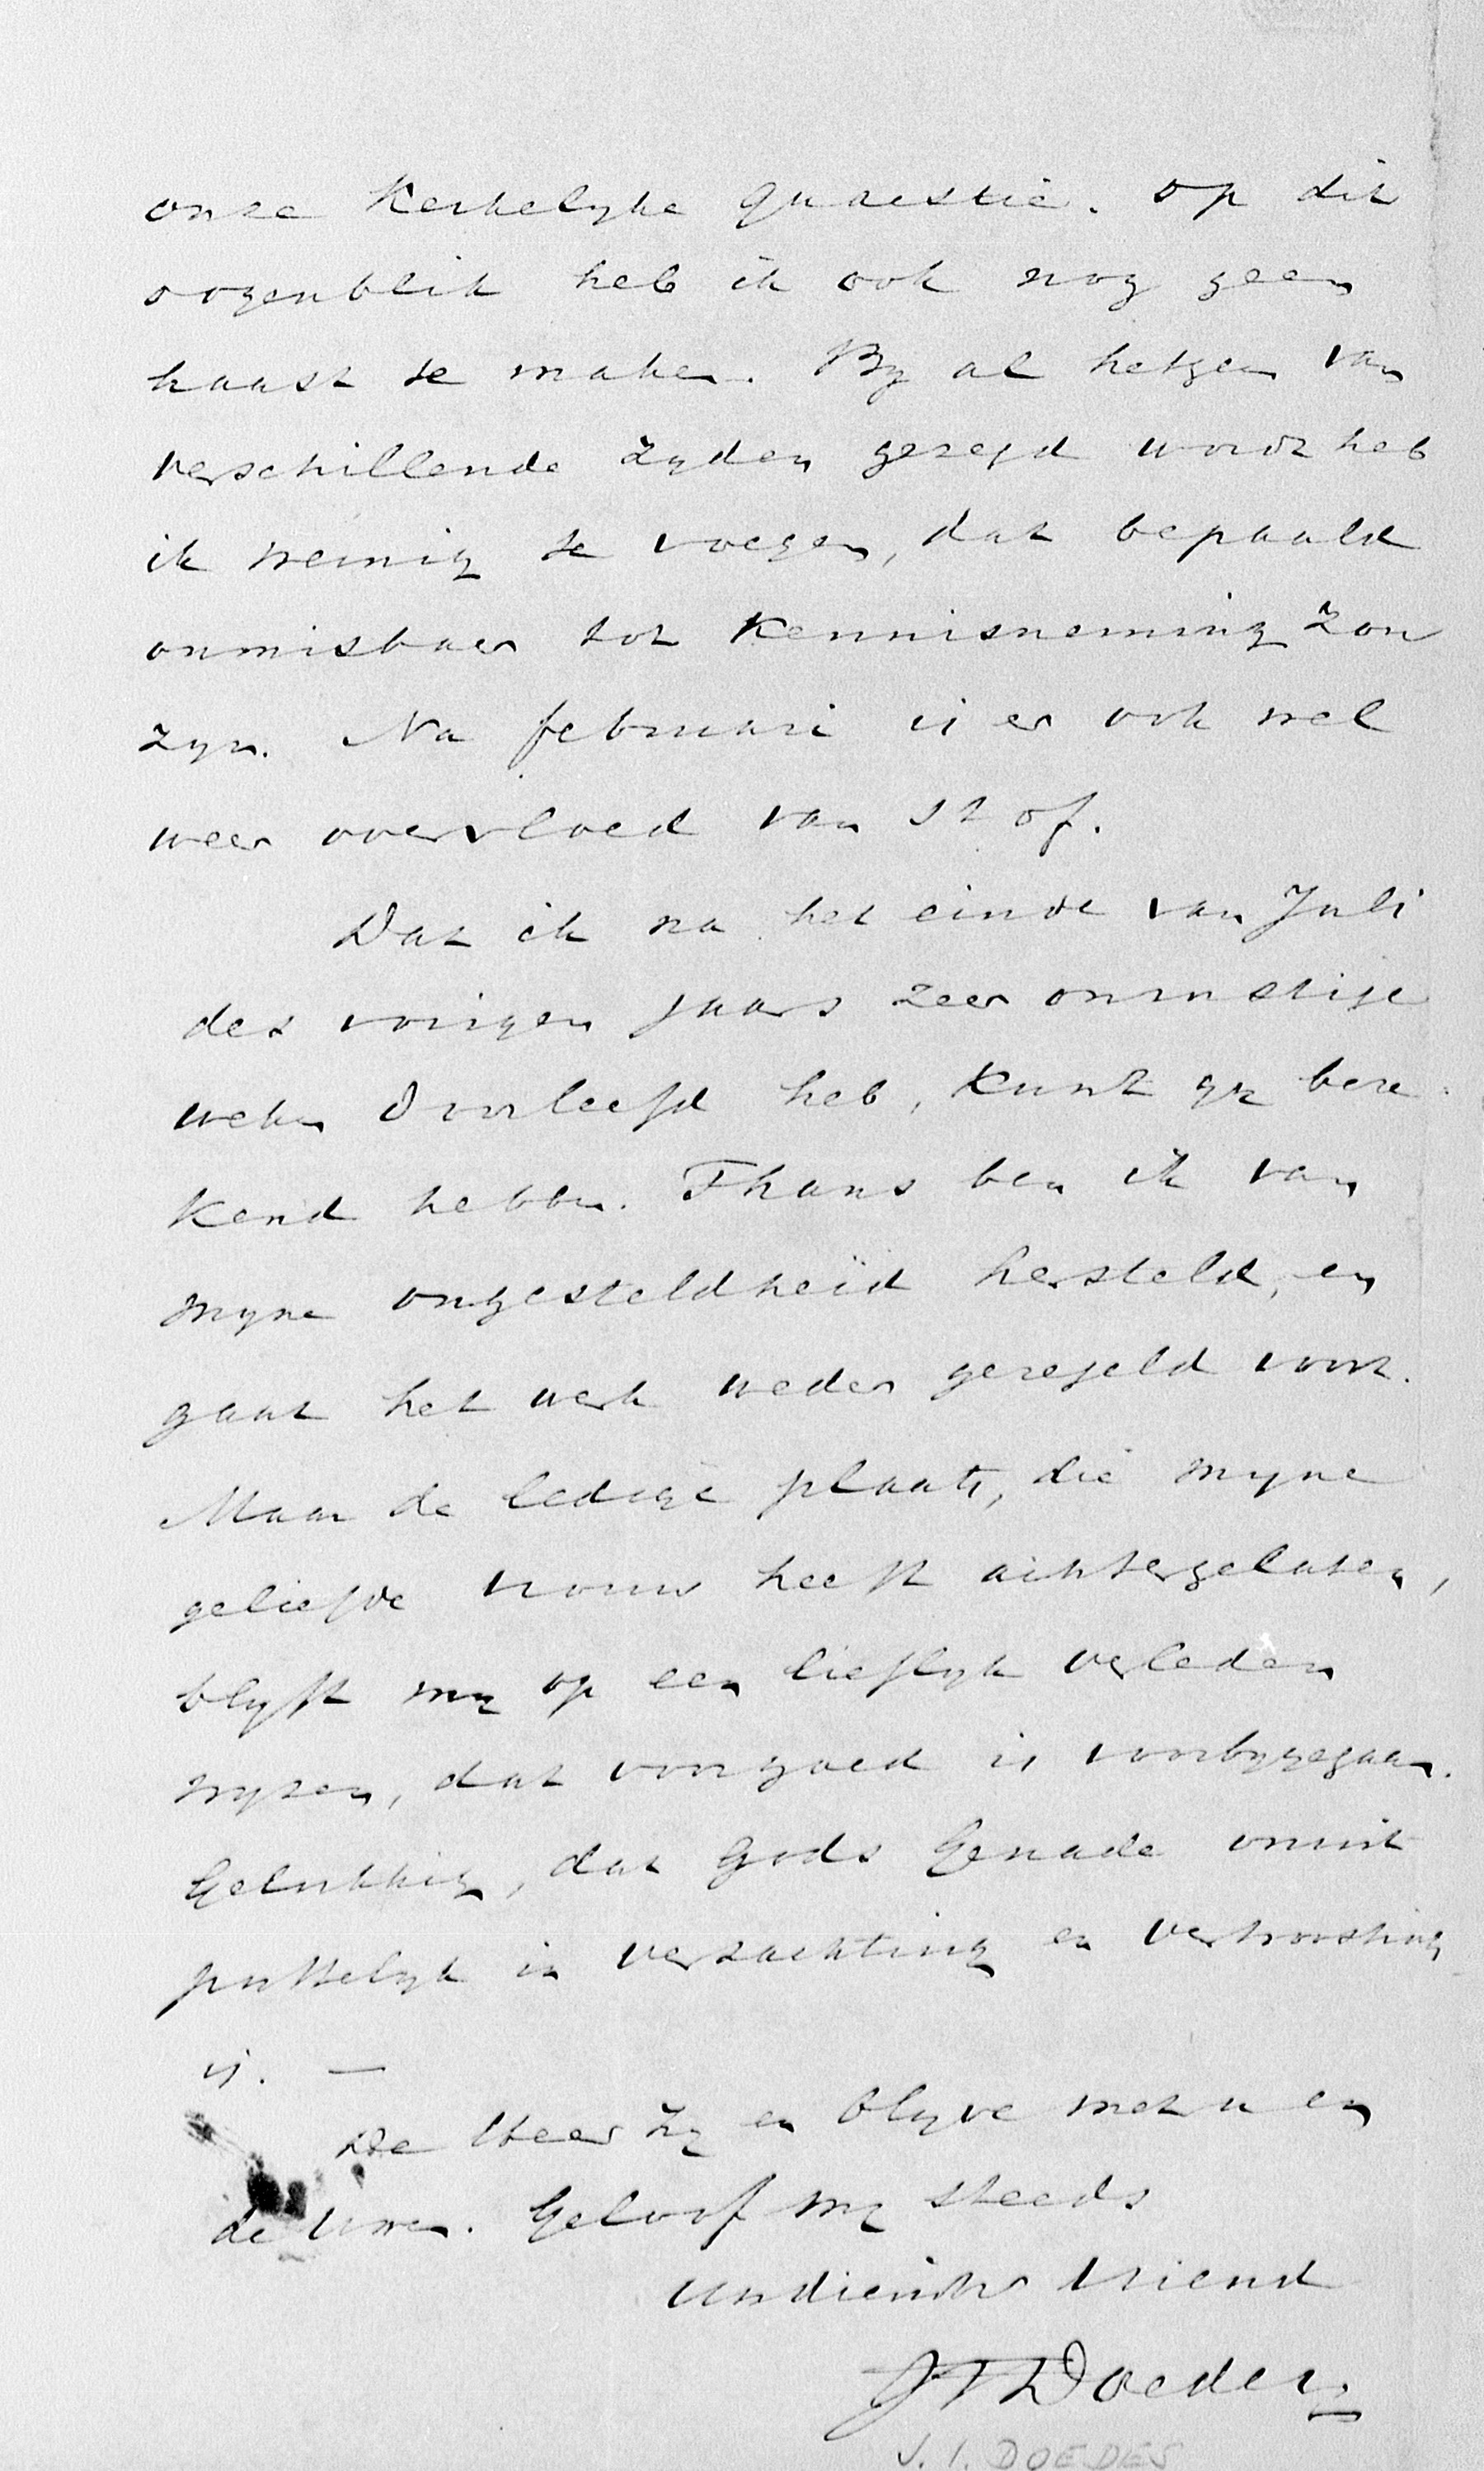 onze kerkelyke quaestie. Op dit
oogenblik heb ik ook nog geen
haast te maken. By al hetgeen van
verschillende zyden gezegd wordt heb
ik weinig te voegen, dat bepaald
onmisbaar tot kennisneming zou
zyn. Na februari is er ook wel
weer overvloed van stof.
Dat ik na het einde van Juli
des vorigen jaars zeer onrustige
weken doorleefd heb, kunt gy bere-
kend hebben. Thans ben ik van
myne ongesteldheid hersteld, en
gaat het werk weder geregeld voort.
Maar de ledige plaats, die myne
geliefde vrouw heeft achtergelaten,
blyft my op een lieflyk verleden
wyzen, dat voorgoed is voorbygegaan.
Gelukkig, dat Gods Genade onuit
puttelyk in verzachting en vertroosting
is. —
De Heer zy en blyve met u en
de Uwen. Geloof my steeds
Uwdienstv vriend
JIDoedes
J. I. DOEDES